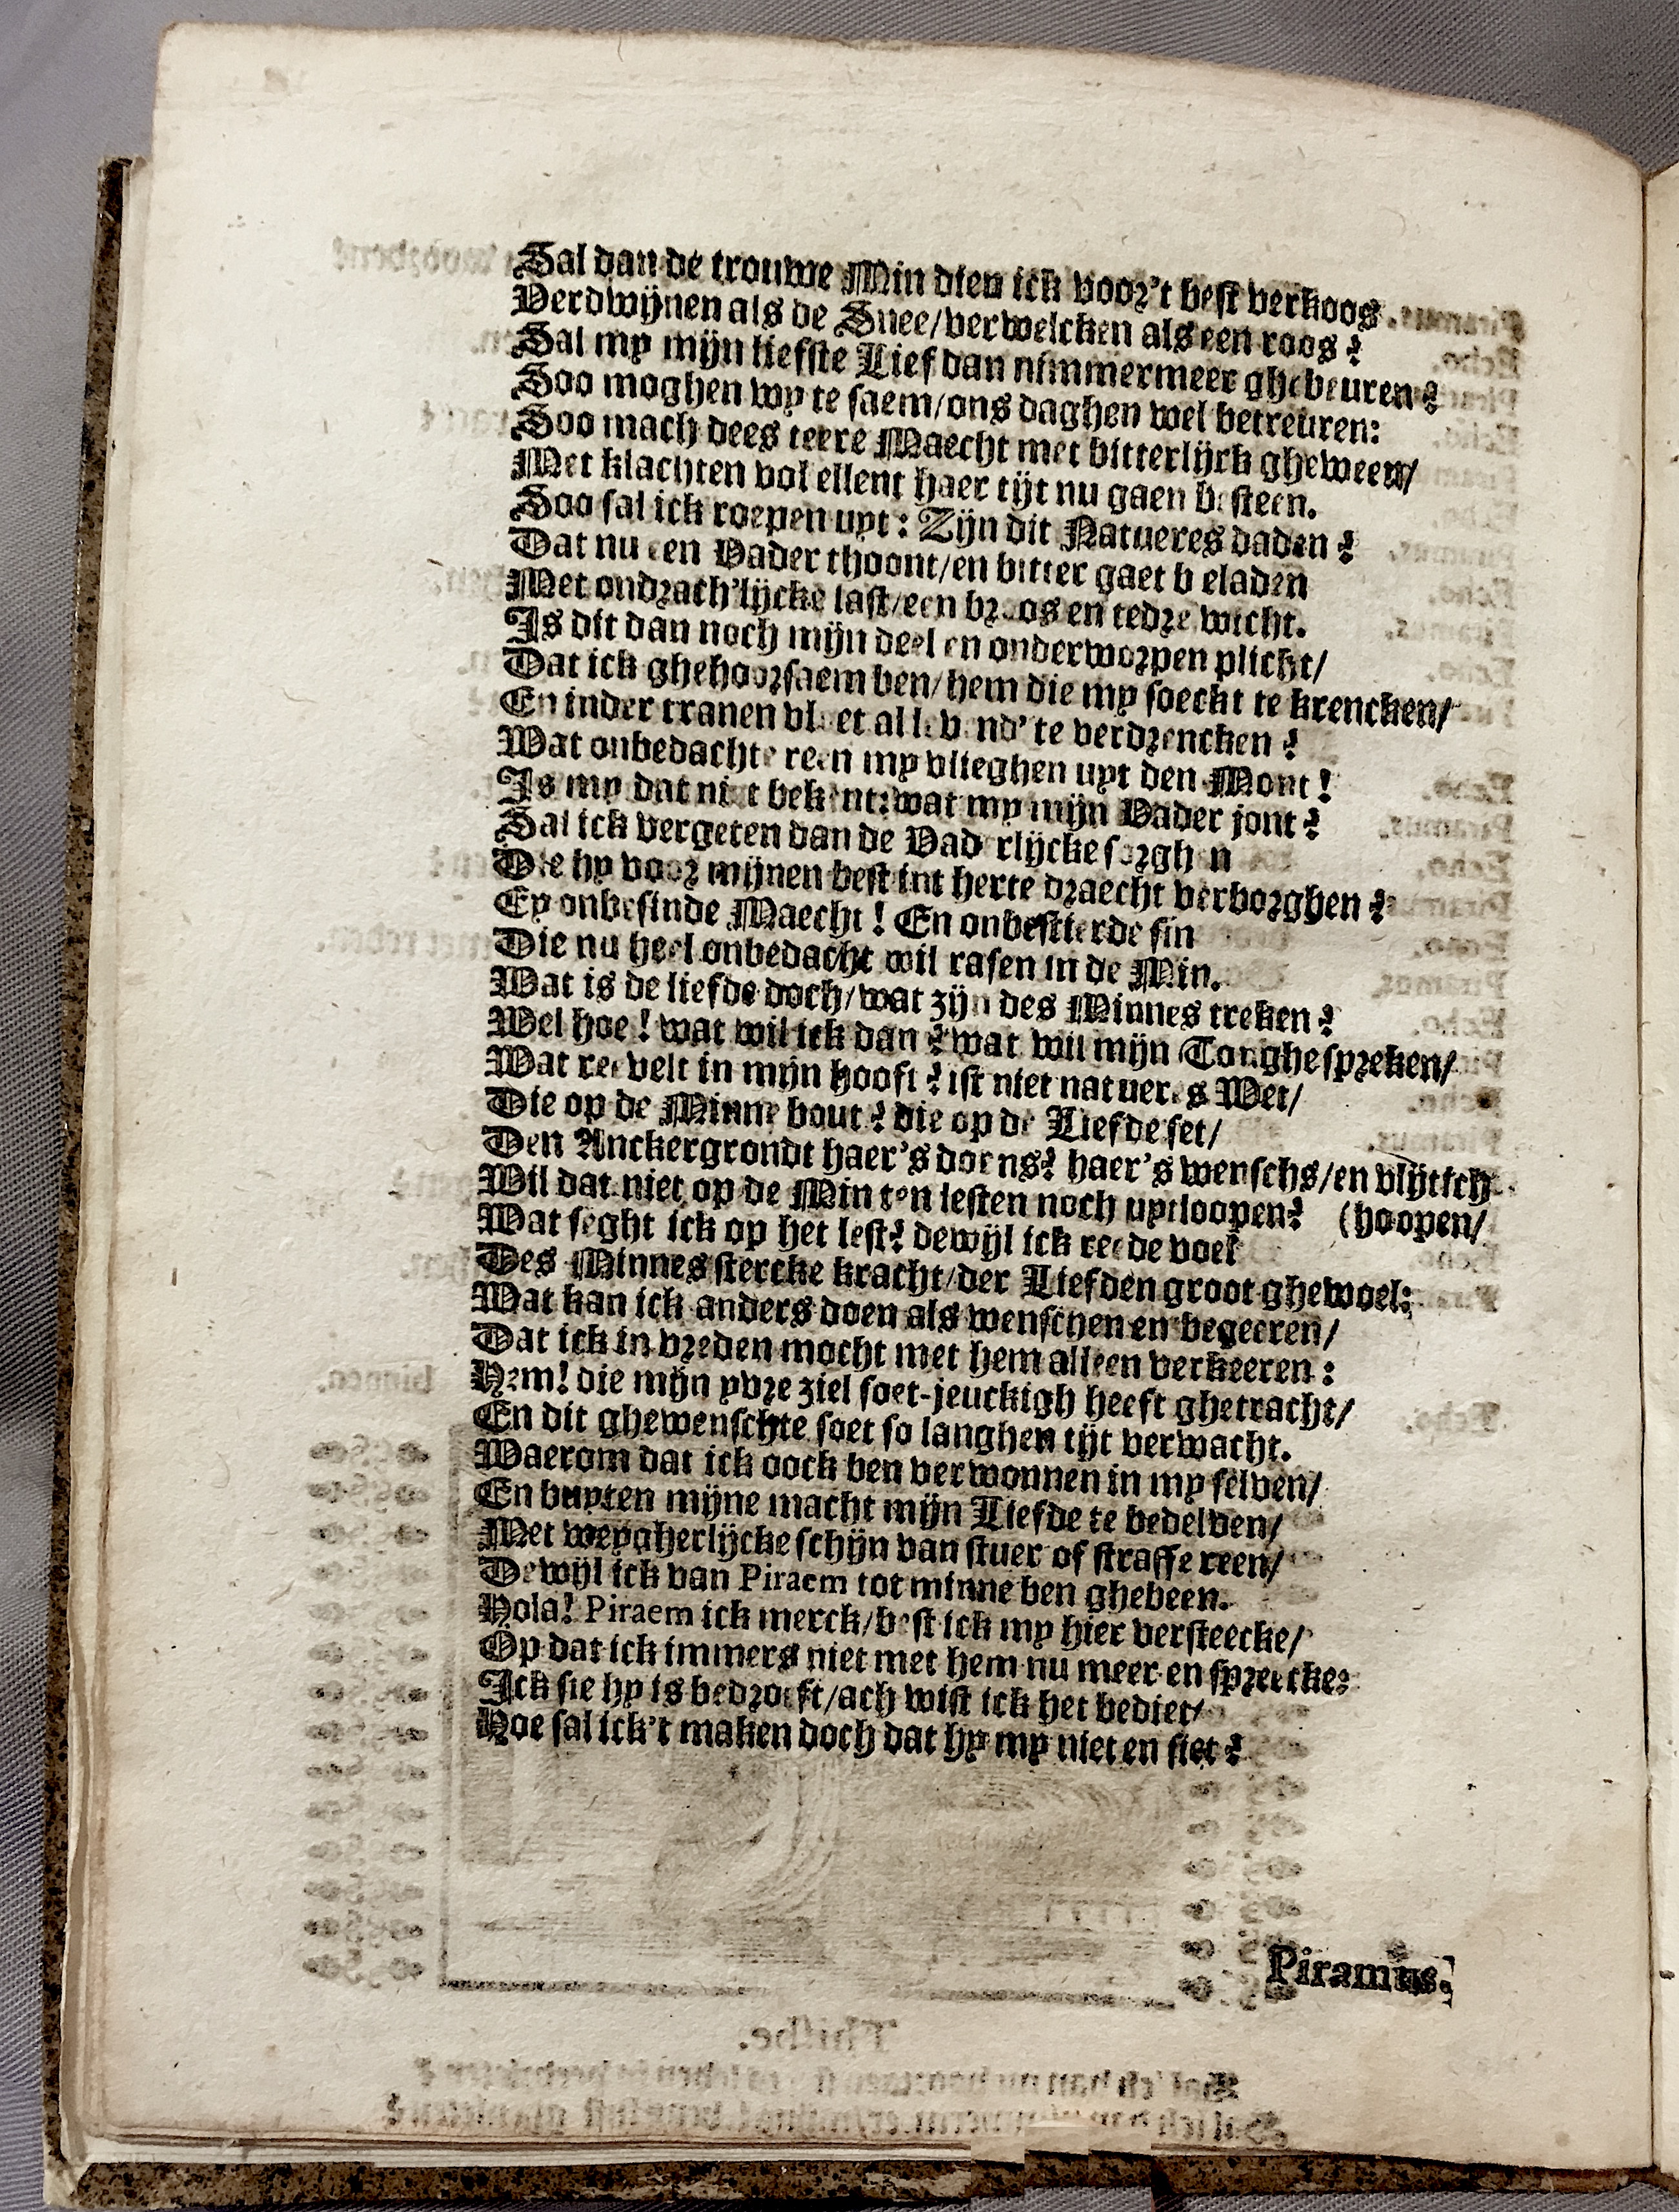 Sal dan de trouwe Min dien ick voor't best verkoos
Verdwijnen als de Snee/verwelcken als een roos?
Sal my mijn liefste Lief dan nimmermeer ghebeuren?
Soo moghen wy te saem/ons daghen wel betreuren:
Soo mach dees teere Maecht met bitterlijck gheween/
Met klachten vol ellent haer tijt nu gaen besteen.
Soo sal ick roepen uyt: Zijn dit Natueres daden?
Dat nu een Vader thoont/en bitter gaet beladen
Met ondrach'lijcke last/een broos en tedre wicht.
Is dit dan noch mijn deel en onderworpen plicht/
Dat ick ghehoorsaem ben/hem die my soeckt te krencken/
En inder tranen vloet al levend' te verdrencken?
Wat onbedachte reen my vlieghen uyt den Mont!
Is my dat niet bekent: wat my mijn Vader jont?
Sal ick vergeten dan de Vaderlijcke sorghen
Die hy voor mijnen best int herte draecht verborghen?
Ey onbesinde Maecht! En onbestierde sin
Die nu heel onbedacht wil rasen in de Min.
Wat is de liefde doch/wat zijn des Minnes treken?
Wel hoe! wat wil ick dan? wat wil mijn Tonghe spreken/
Wat revelt in mijn hooft? ist niet natueres Wet/
Die op de Minne bout? die op de Liefde set/
Den Anckergrondt haer's doens? haer's wenschs/en vlijtich
Wil dat niet op de Min ten lesten noch uytloopen? (hoopen/
Wat seght ick op het lest? dewijl ick reede voel
Des Minnes stercke kracht/der Liefden groot ghewoel:
Wat kan ick anders doen als wenschen en begeeren/
Dat ick in vreden mocht met hem alleen verkeeren:
Hem! die mijn yvre ziel soet-jeuckigh heeft ghetracht/
En dit ghewenschte soet so langhen tijt verwacht.
Waerom dat ick oock ben verwonnen in my selven/
En buyten mijne macht mijn Liefde te bedelven/
Met weygherlijcke schijn van stuer of straffe reen/
Dewijl ick van Piraem tot minne ben ghebeen.
Hola! Piraem ick merck/best ick my hier versteecke/
Op dat ick immers niet met hem nu meer en spreecke:
Ick sie hy is bedroeft/ach wist ick het bediet/
Hoe sal ick't maken doch dat hy my niet en siet?
Piramus.